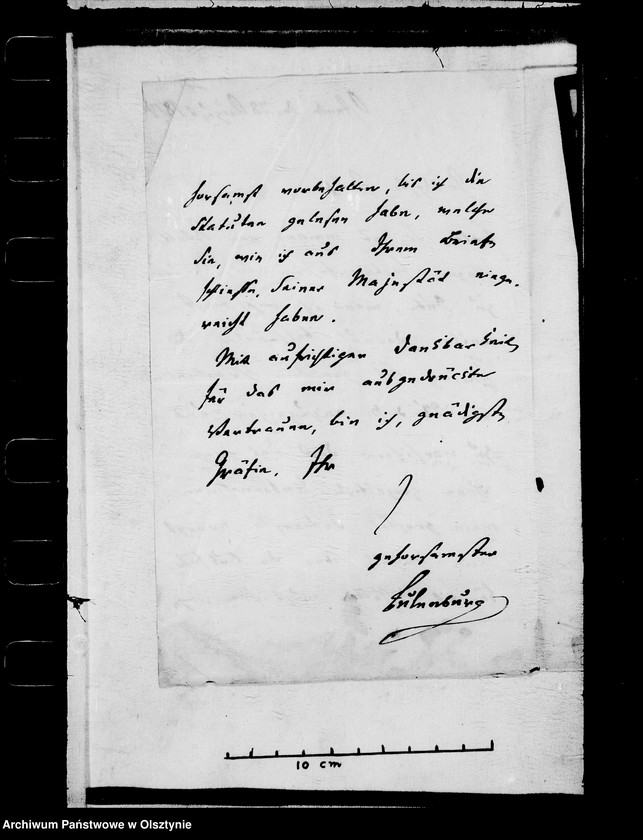 horsamst vorbehalten, bis ich die
Statuten gelesen habe, welche
Sie, wie ich aus Ihrem Briefe
schließe, Seiner Majestät einge-
reicht haben.
Mit aufrichtiger Dankbarkeit
für das mir ausgedrückte
Vertrauen, bin ich, gnädigste
Gräfin, Ihr
gehorsamster
Eulenburg
10 cm
Archiwum Państwowe w Olsztynie